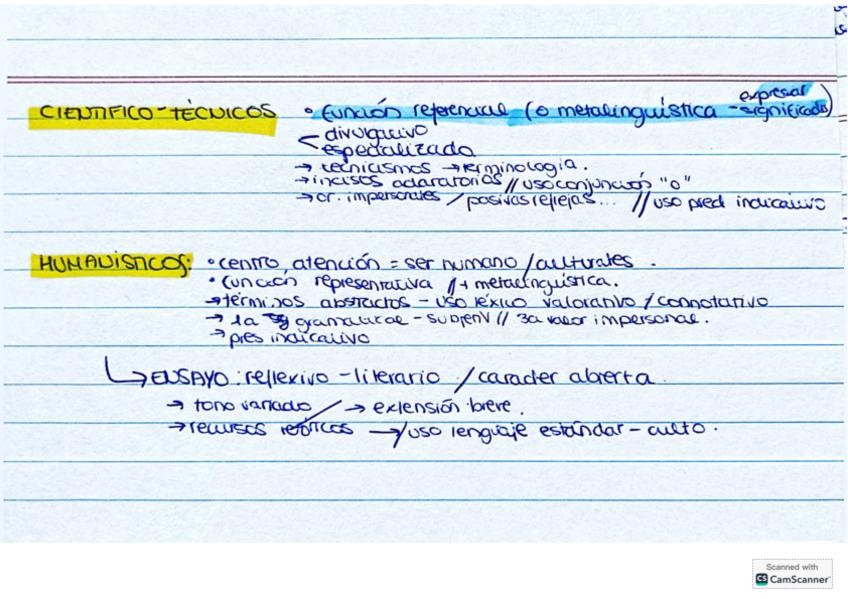 CIENTÍFICO-TÉCNICOS • función referencial (o metalingüística - expresar significados)
divulgativo
< especializado
→ tecnicismos → terminología.
→ incisos aclaratorios // uso conjunción "o"
→ or. impersonales / pasivas reflejas... // uso pred indicativo
HUMANÍSTICOS: • centro atención = ser humano / culturales.
• función representativa // + metalingüística.
→ términos abstractos - uso léxico valorativo / connotativo
→ 1a gramatical - subjetiv // 3a valor impersonal.
→ pres indicativo
↳ ENSAYO: reflexivo - literario / caracter abierta
→ tono variado / → extensión breve.
→ recursos retóricos → / uso lenguaje estándar - culto.
Scanned with
CS CamScanner